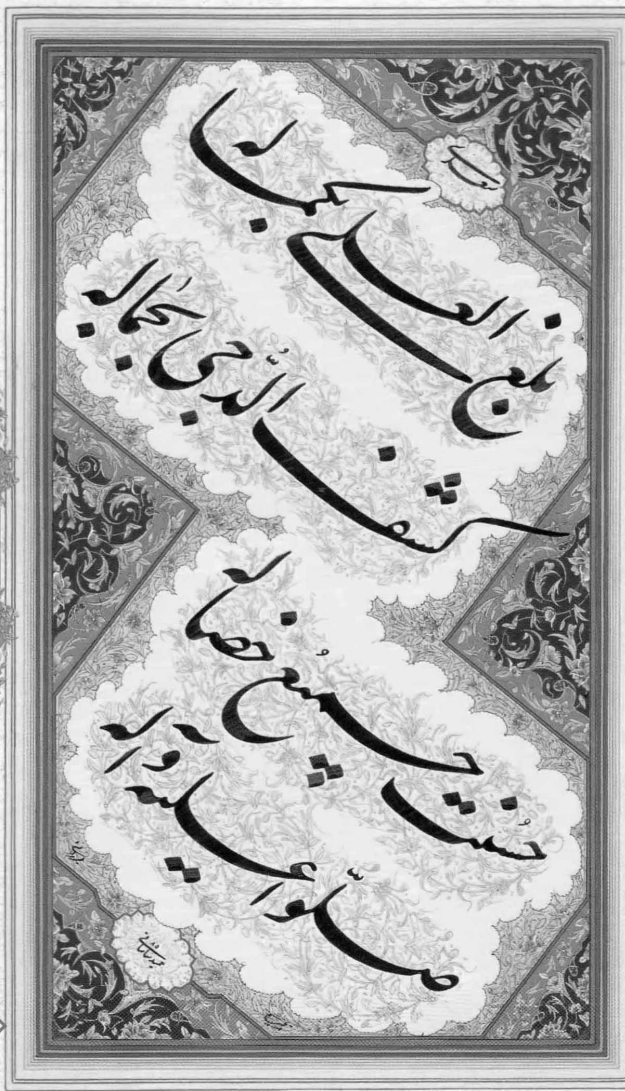 بلغ العلی بکماله
کشف الدّجی بجماله
حسُنت جمیعُ خصاله
صلّوا علیه و آله